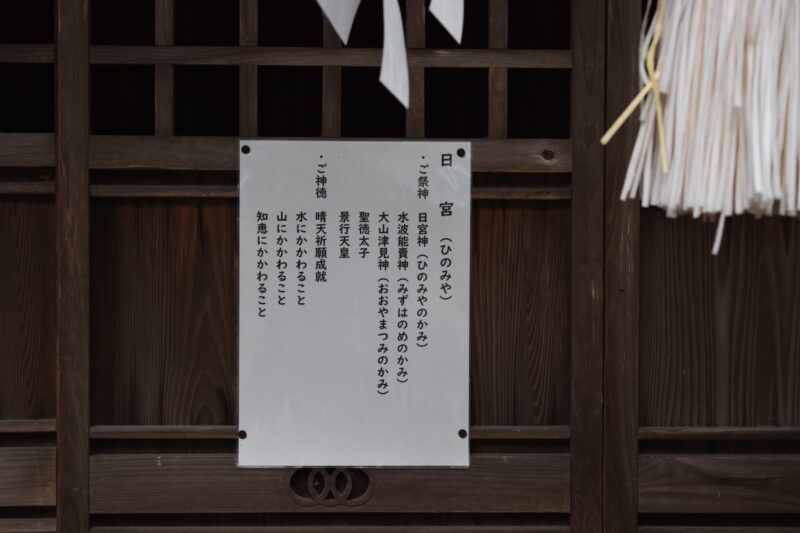 日宮（ひのみや）
・ご祭神 日宮神（ひのみやのかみ）
水波能賣神（みずはのめのかみ）
大山津見神（おおやまつみのかみ）
聖徳太子
景行天皇
・ご神徳 晴天祈願成就
水にかかわること
山にかかわること
知恵にかかわること